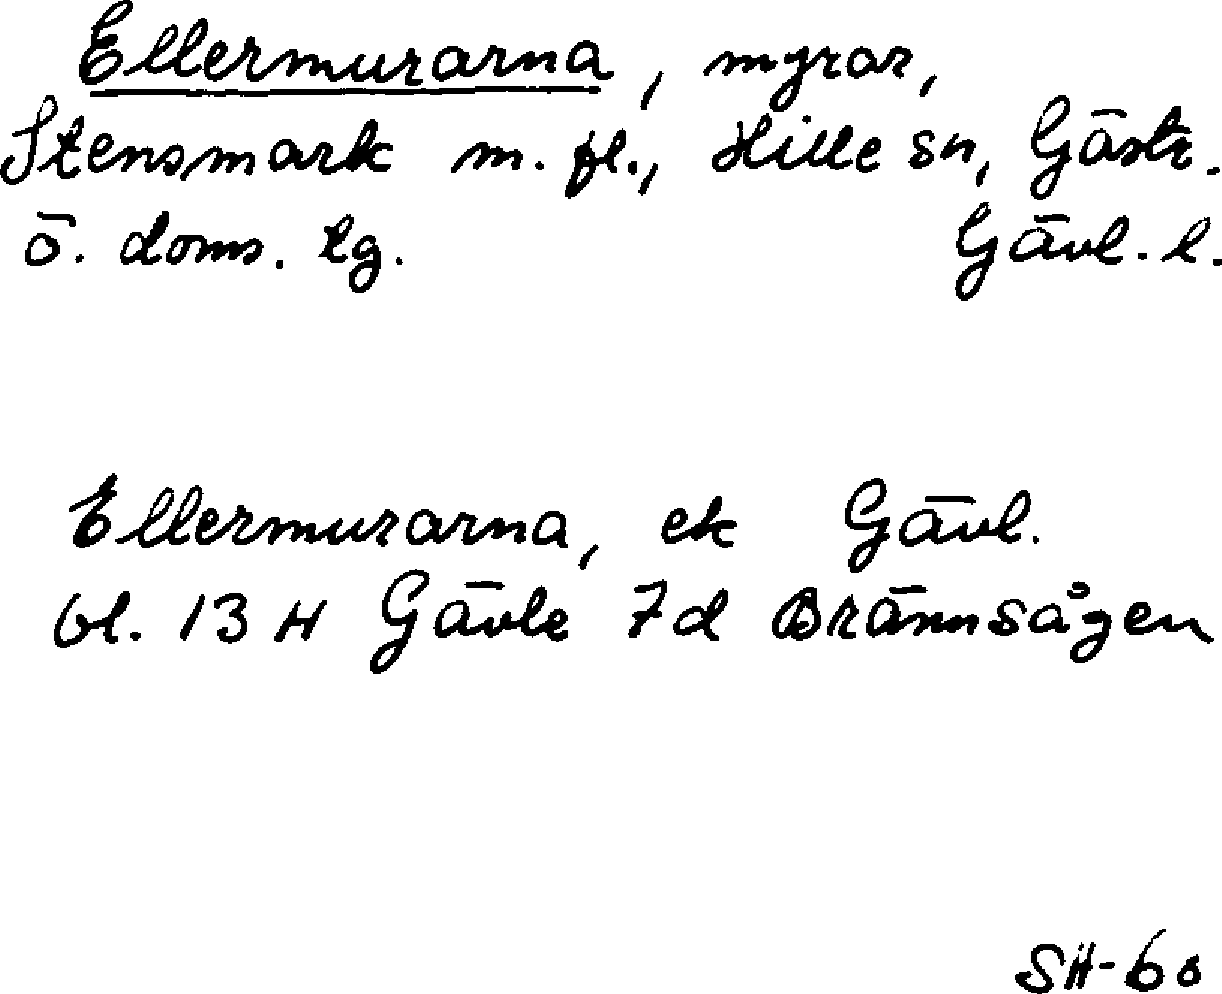 Ellermurarna, myrar,
Stensmark m. fl., Hille sn, Gästr.
ö. doms. tg. Gävl. l.
Ellermurarna, ek Gävl.
bl. 13 H Gävle 7d Brännsågen
SH-60